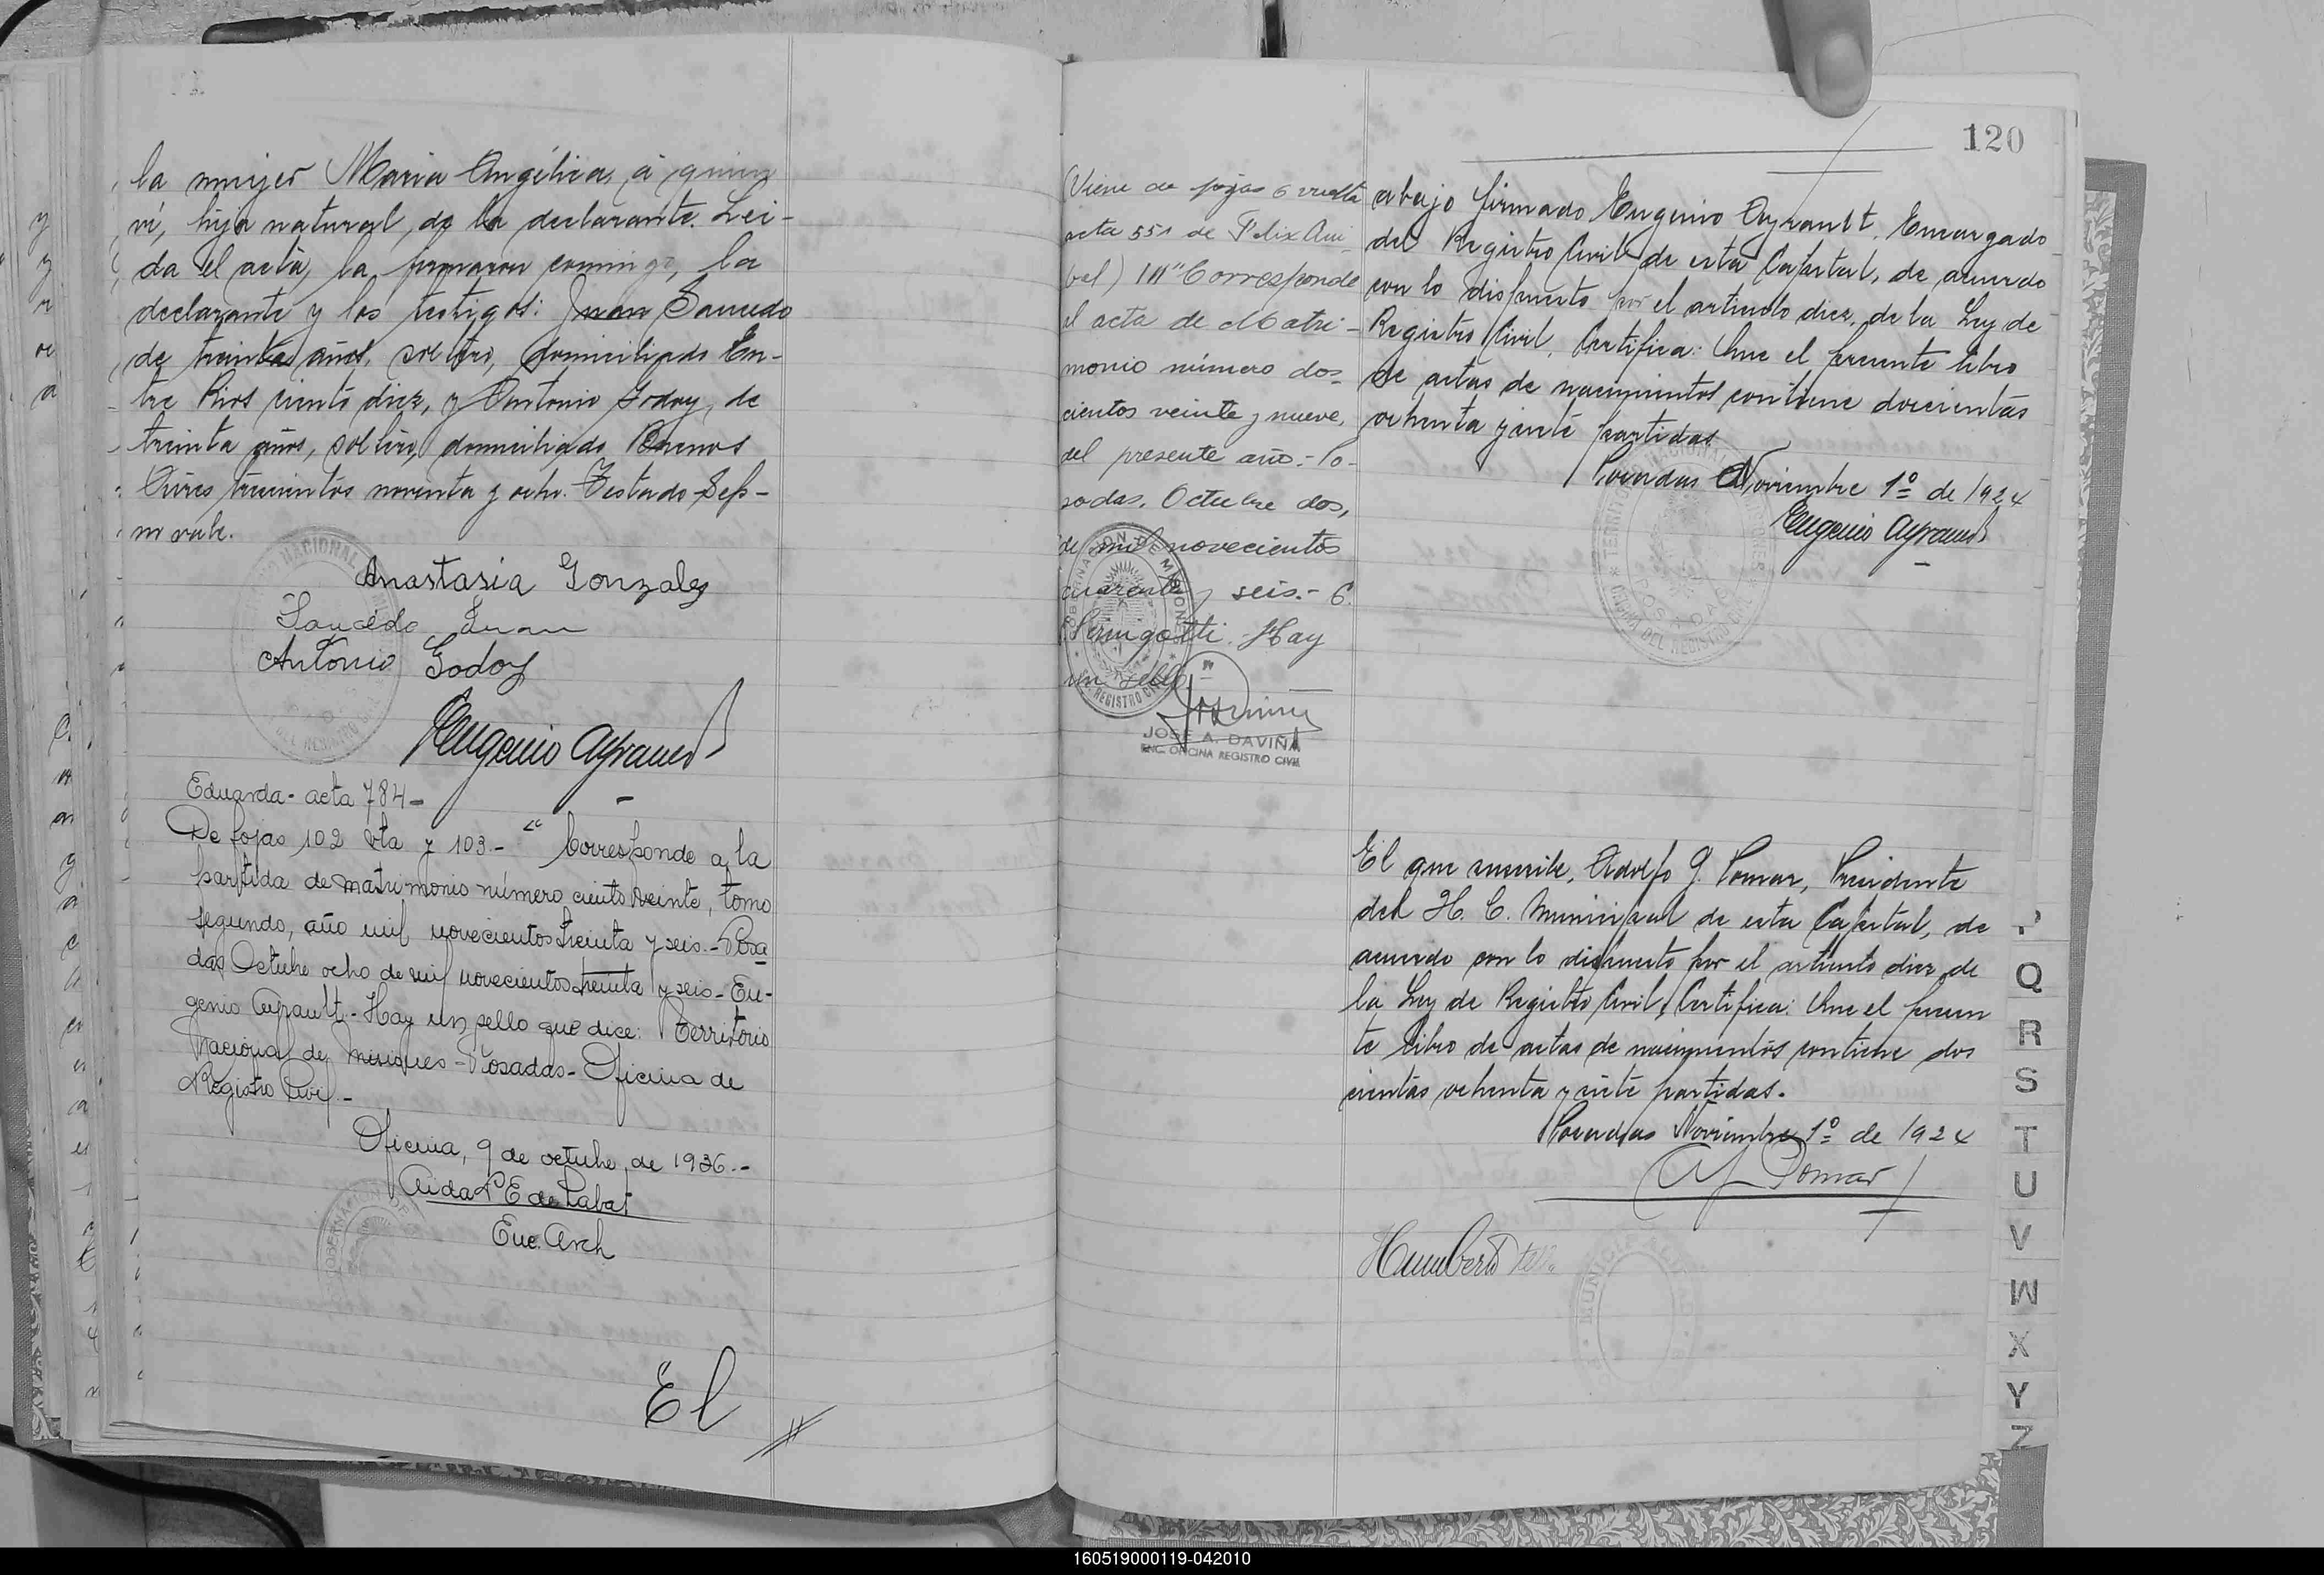 la mujer Maria Angélica, á quien
ví, hija natural, de la declarante. Lei-
da el acta, la firmaron conmigo, la
declarante y los testigos: Juan Saucedo
de treinta años, soltero, domiciliado En-
tre Rios ciento diez, y Antonio Godoy, de
treinta años, soltero, domiciliado Buenos
Aires trescientos noventa y ocho. Testado Sep-
no vale.
Anastasia Gonzales
Saucédo Juan
Antonio Godoy
Eugenio Ayrault
Eduarda - acta 784 -
De fojas 102 vta y 103.- "Corresponde a la
partida de matrimonio número ciento veinte, tomo
segundo, año mil novecientos treinta y seis.- Posa
das Octubre ocho de mil novecientos treinta y seis - Eu-
genio Ayrault - Hay un sello que dice: Territorio
Nacional de Misiones - Posadas - Oficina de
Registro Civil.-
Oficina, 9 de octubre de 1936.-
Aida E de Labat
Enc. Arch
El
120
Viene de fojas 6 vuelta
acta 551 de Felix Ani
bal) "Corresponde
al acta de Matri-
monio número dos-
cientos veinte y nueve,
del presente año.- Po-
sadas. Octubre dos,
de mil novecientos
cuarenta y seis.-
Hay
un sello"
GOBERNACION DE MISIONES
REGISTRO CIVIL
JOSE A. DAVIÑA
ENC. OFICINA REGISTRO CIVIL
abajo firmado Eugenio Ayrault, Encargado
del Registro Civil de esta Capital, de acuerdo
con lo dispuesto por el articulo diez, de la Ley de
Registro Civil, Certifica: Que el presente libro
de actas de nacimientos contiene doscientas
ochenta y siete partidas.
Posadas Noviembre 1º de 1924
Eugenio Ayrault
El que suscribe, Adolfo J. Pomar, Presidente
del H. C. Municipal de esta Capital, de
acuerdo con lo dispuesto por el articulo diez, de
la Ley de Registro Civil, Certifica: Que el presen
te libro de actas de nacimientos contiene dos
cientas ochenta y siete partidas.
Posadas Noviembre 1º de 1924
Pomar
Humberto
Q
R
S
T
U
V
W
X
Y
Z
160519000119-042010